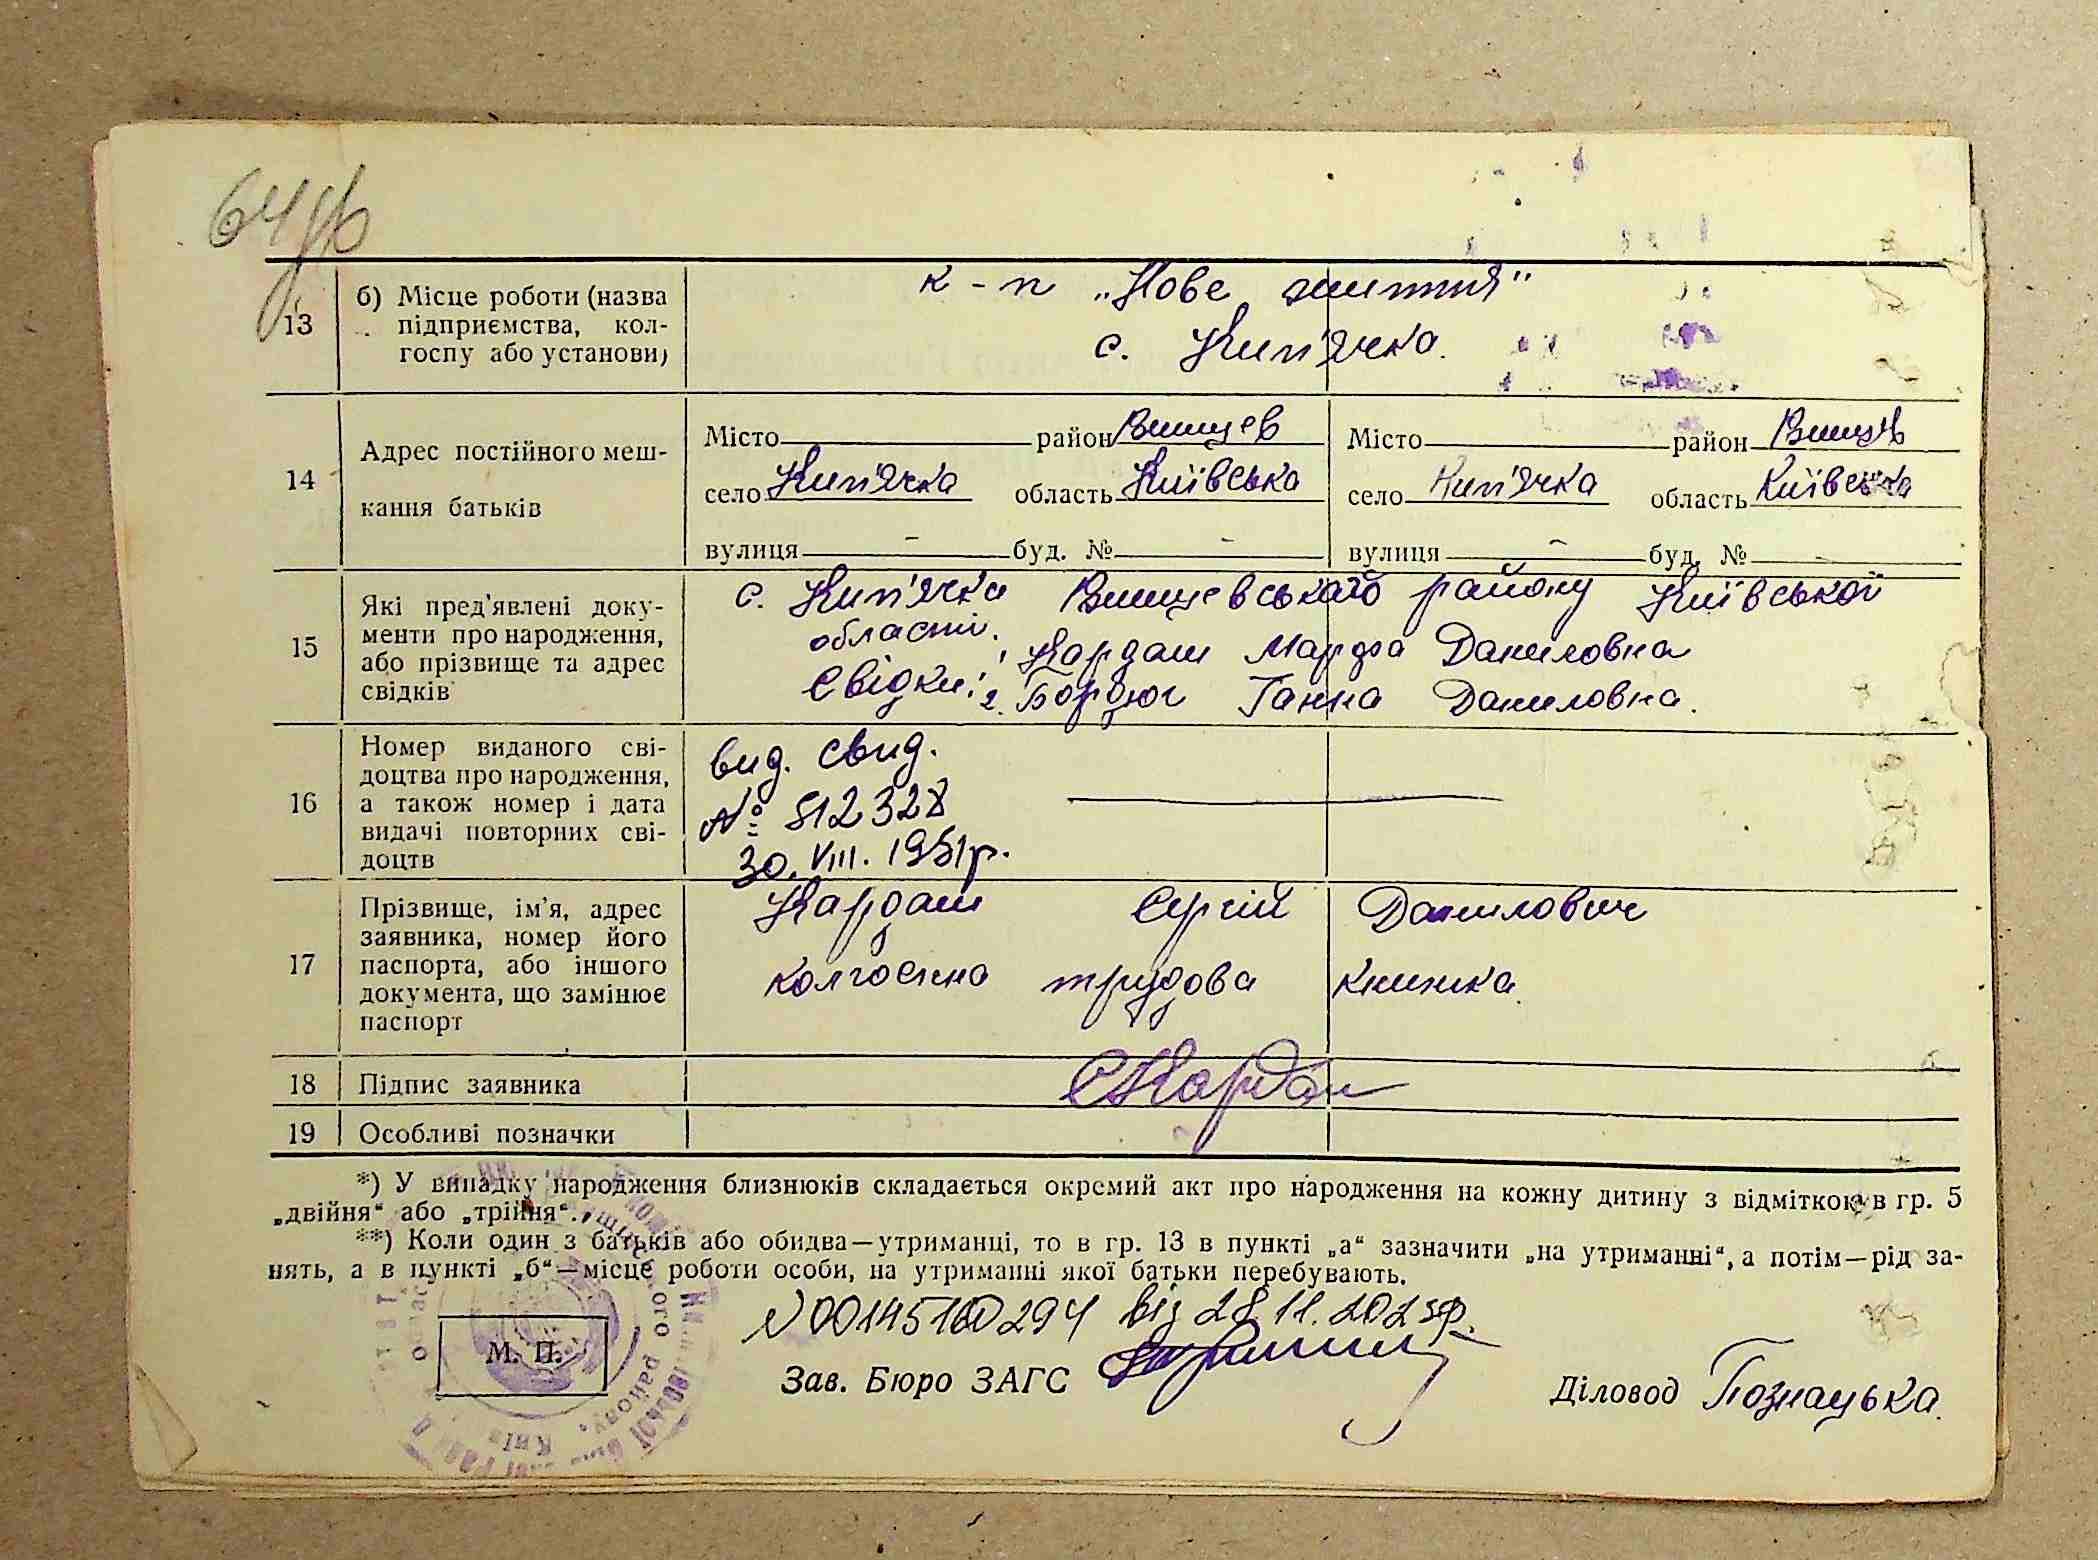 64 зф
13
б) Місце роботи (назва
підприємства, кол-
госпу або установи)
к-п „Нове життя"
с. Кип'ячка.
14
Адрес постійного меш-
кання батьків
Місто район Вищев
село Кип'ячка область Київська
вулиця - буд. № -
Місто район Вищев
село Кип'ячка область Київська
вулиця - буд. № -
15
Які пред'явлені доку-
менти про народження,
або прізвище та адрес
свідків
с. Кип'ячка Вищевського району Київської
області.
Свідки: 1. Кардаш Марфа Даниловна
2. Бордюг Ганна Даниловна.
16
Номер виданого сві-
доцтва про народження,
а також номер і дата
видачі повторних сві-
доцтв
вид. свид.
№ 512328
30. VIII. 1951 р.
17
Прізвище, ім'я, адрес
заявника, номер його
паспорта, або іншого
документа, що замінює
паспорт
Кардаш Сергій Данилович
колгоспна трудова книжка.
18
Підпис заявника
СКардаш
19
Особливі позначки
*) У випадку народження близнюків складається окремий акт про народження на кожну дитину з відміткою в гр. 5
„двійня" або „трійня".
**) Коли один з батьків або обидва—утриманці, то в гр. 13 в пункті „а" зазначити „на утриманні", а потім—рід за-
нять, а в пункті „б"—місце роботи особи, на утриманні якої батьки перебувають.
N00145160294 від 28.11.2023р.
М. П.
Зав. Бюро ЗАГС
Діловод Познацька.